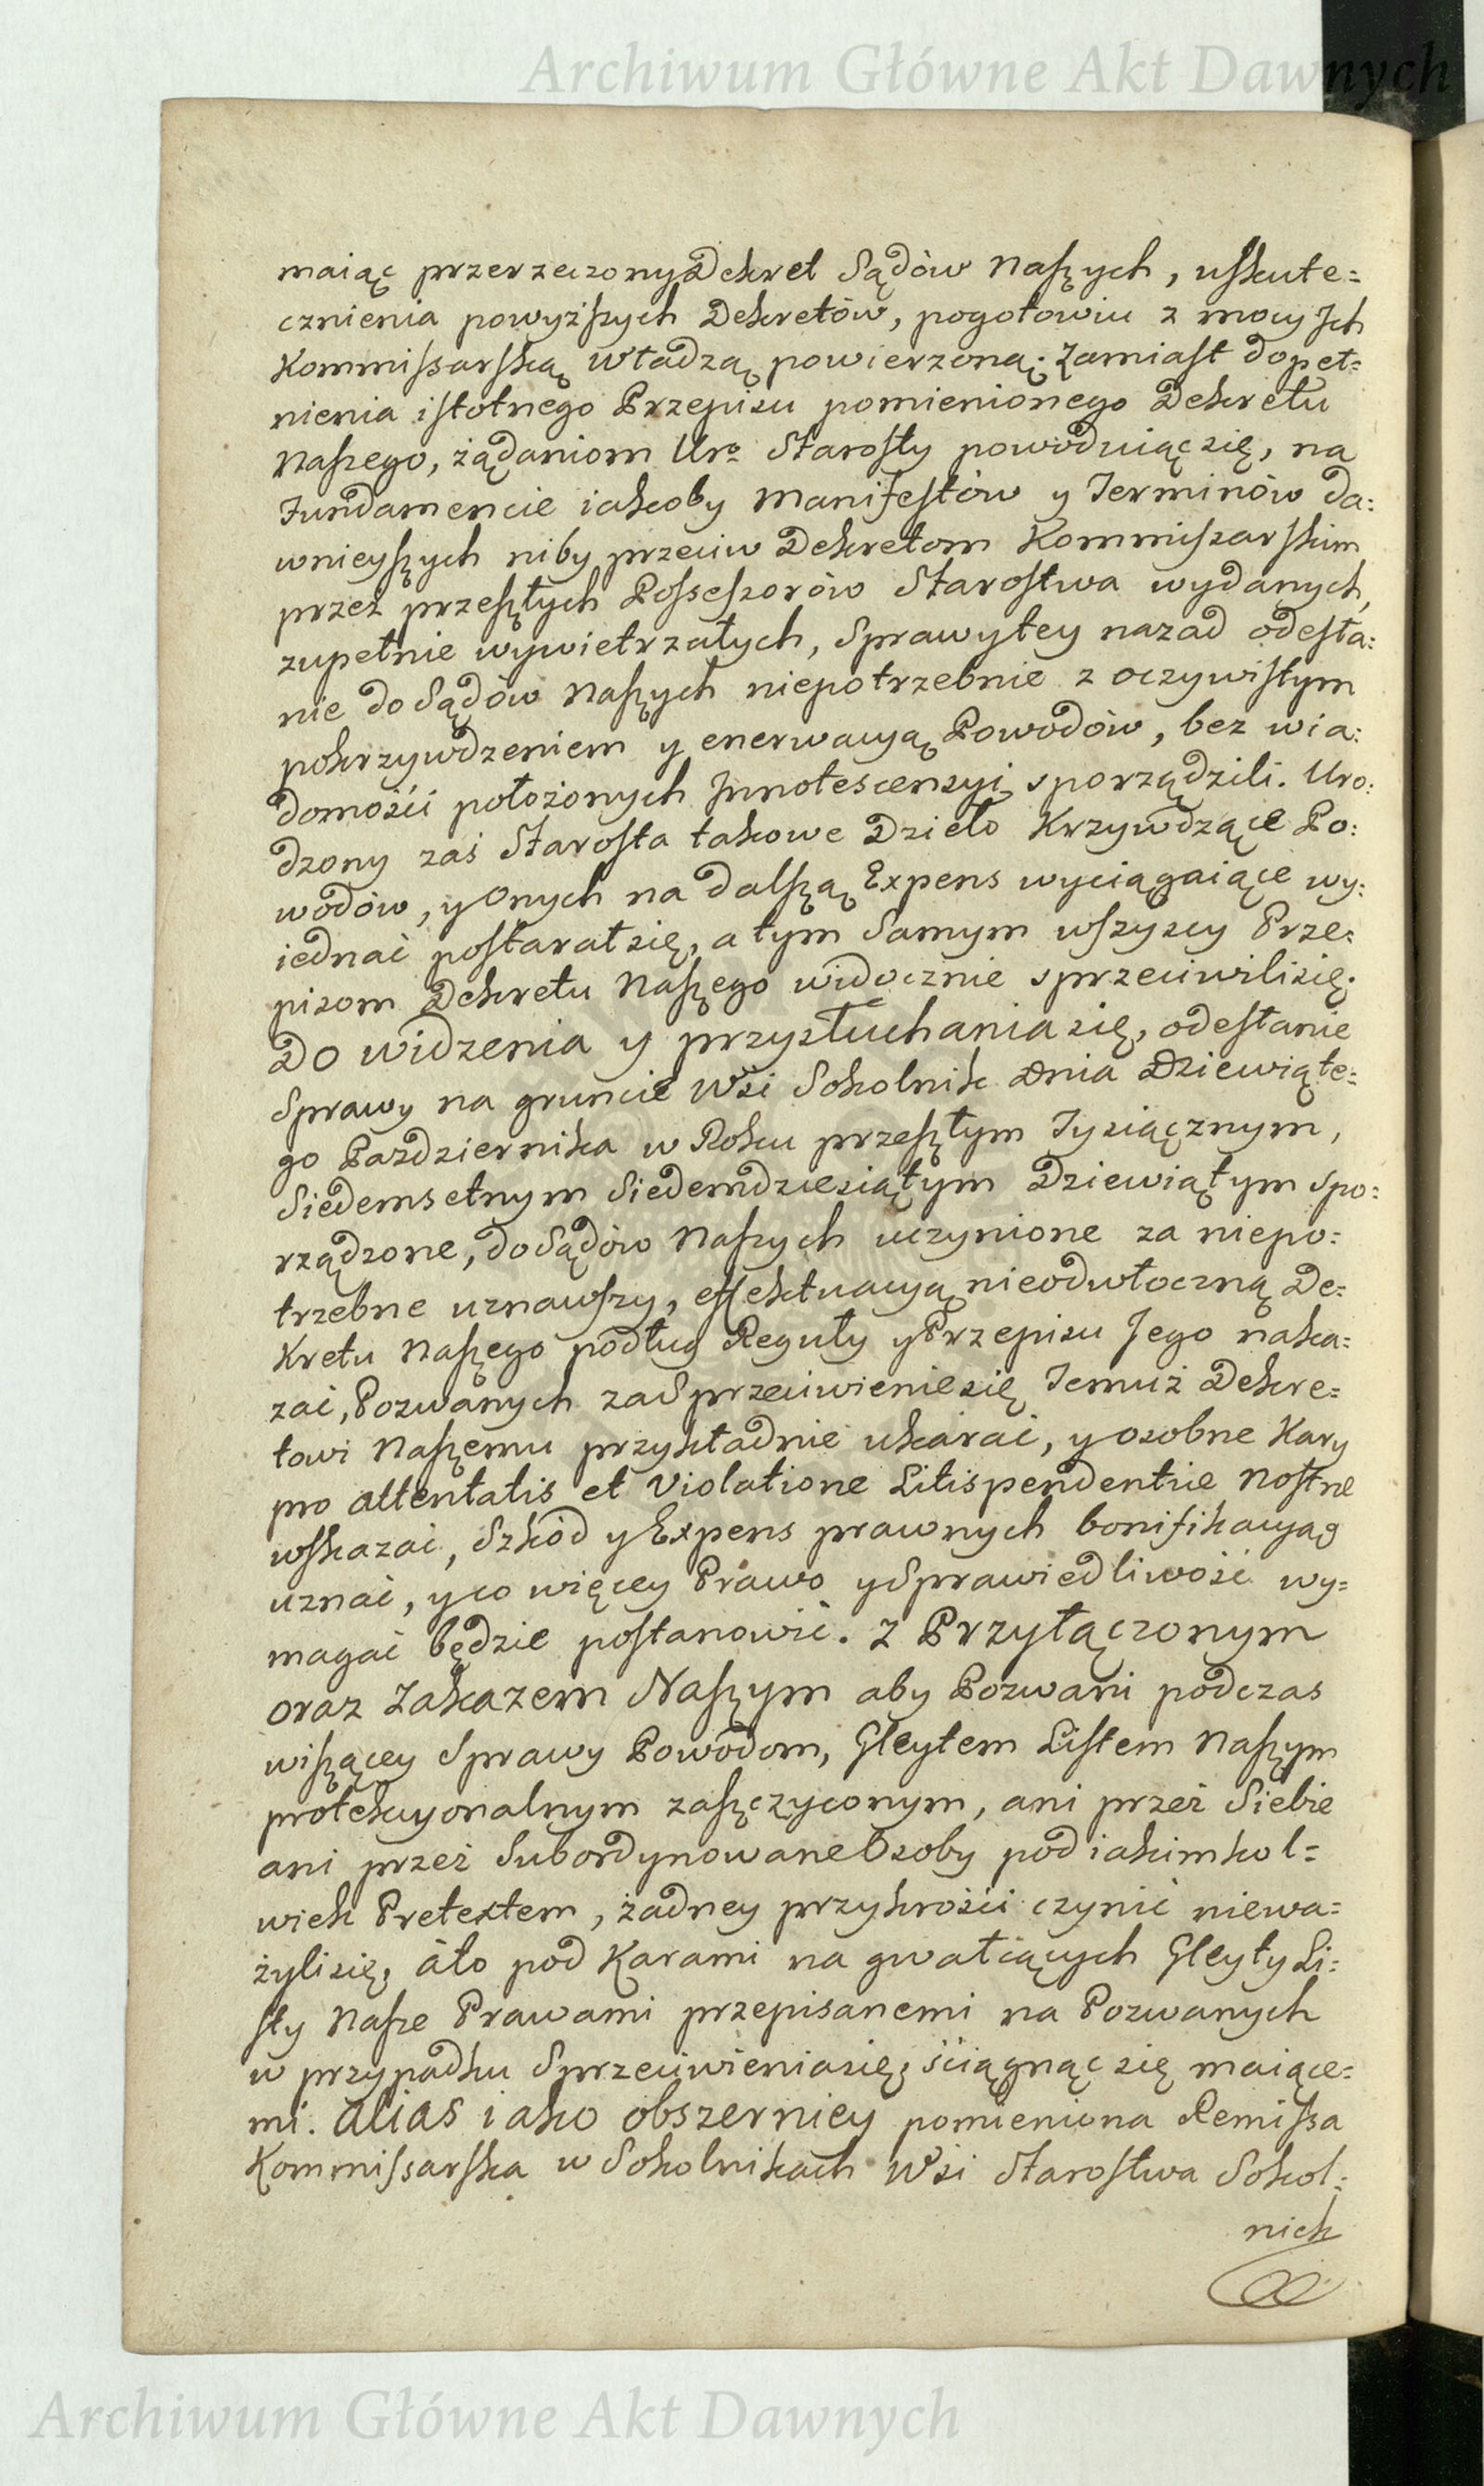 Archiwum Główne Akt Dawnych
maiąc przerzeczony Dekret Sądów Naszych, uskute=
cznienia powyższych Dekretów, pogotowiu z mocy Jch
Kommissarską władzą powierzoną; Zamiast dopeł=
nienia istotnego Przepisu pomienionego Dekretu
Naszego, żądaniom Uro Starosty powoduiąc się, na
Fundamencie iakoby Manifestów y Terminów da=
wnieyszych niby przeciw Dekretom Kommissarskim
przez przeszłych Possessorów Starostwa wydanych,
zupełnie wywietrzałych, Sprawy tey nazad odesła=
nie do Sądów Naszych niepotrzebnie z oczywistym
pokrzywdzeniem y enerwacyą Powodów, bez wia=
domości położonych Jnnotescensyi sporządzili. Uro=
dzony zaś Starosta takowe Dzieło Krzywdzące Po=
wodów, y Onych na dalszą Expens wyciągaiące wy=
iednać postarał się, a tym Samym wszyscy Prze=
pisom Dekretu Naszego widocznie sprzeciwili się;
Do widzenia y przysłuchania się, odesłanie
Sprawy na gruncie Wsi Sokolnik Dnia Dziewiąte=
go Pazdziernika w Roku przeszłym Tysiącznym,
Siedemsetnym Siedemdziesiątym Dziewiątym spo=
rządzone, do Sądów Naszych uczynione za niepo=
trzebne uznawszy, effektuacyą nieodwłoczną De=
Kretu Naszego podług Reguły y Przepisu Jego naka=
zać, Pozwanych za Sprzeciwienie się Temuż Dekre=
towi Naszemu przykładnie ukarać, y osobne Kary
pro attentatis et Violatione Litispendentiæ Nostræ
wskazać, Szkód y Expens prawnych bonifikacyą
uznać, y co więcey Prawo y Sprawiedliwość wy=
magać będzie postanowić. Z Przyłączonym
oraz Zakazem Naszym aby Pozwani podczas
wiszącey Sprawy Powodom, Gleytem Listem Naszym
protekcyonalnym zaszczyconym, ani przez Siebie
ani przez Subordynowane Osoby pod iakimkol=
wiek Pretextem, żadney przykrości czynić niewa=
żyli się, á to pod Karami na gwałcących Gleyty Li=
sty Nasze Prawami przepisanemi na Pozwanych
w przypadku Sprzeciwienia się, ściągnąć się maiące=
mi. alias iako obszerniey pomieniona Remissa
Kommissarska w Sokolnikach Wsi Starostwa Sokol=
nick
Archiwum Główne Akt Dawnych